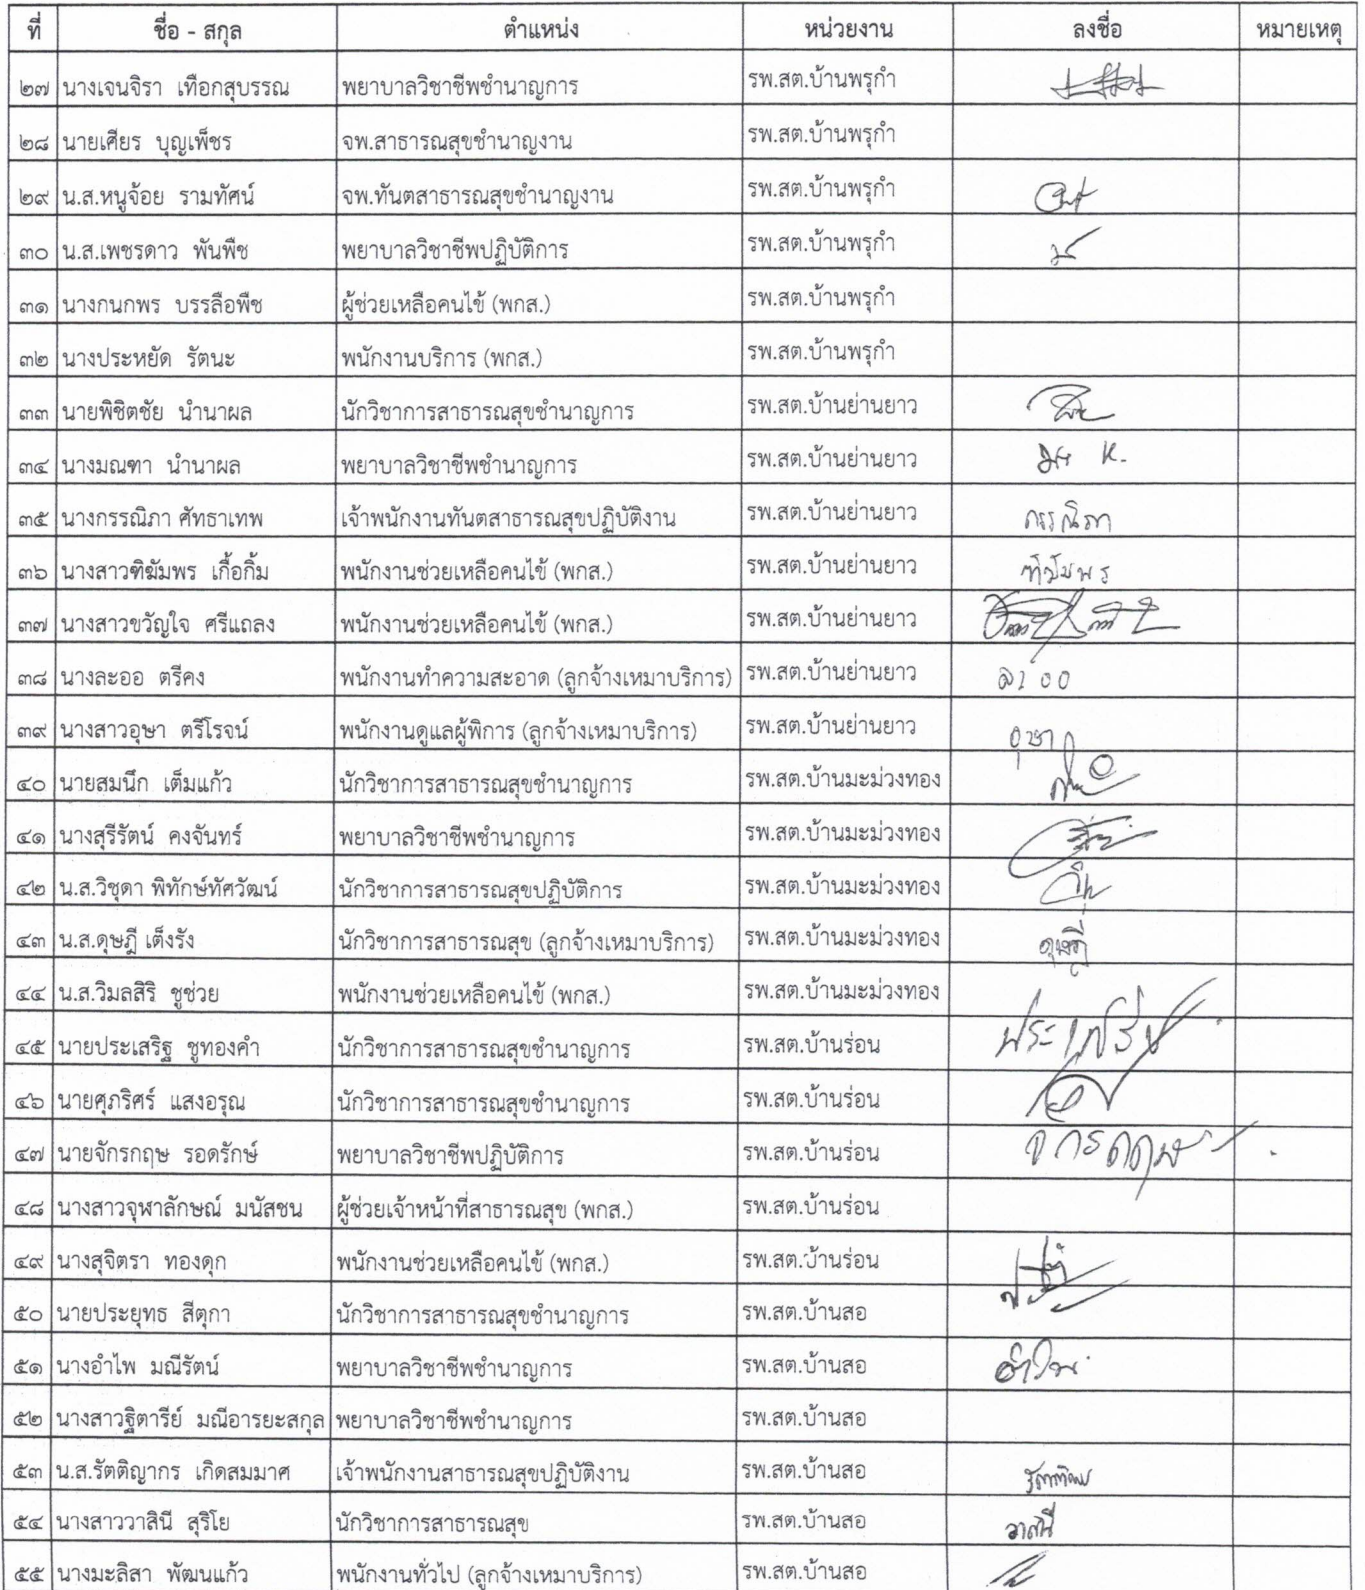 ที่ ชื่อ - สกุล ตำแหน่ง หน่วยงาน ลงชื่อ หมายเหตุ
๒๗ นางเจนจิรา เทือกสุบรรณ พยาบาลวิชาชีพชำนาญการ รพ.สต.บ้านพรุกำ
๒๘ นายเศียร บุญเพ็ชร จพ.สาธารณสุขชำนาญงาน รพ.สต.บ้านพรุกำ
๒๙ น.ส.หนูจ้อย รามทัศน์ จพ.ทันตสาธารณสุขชำนาญงาน รพ.สต.บ้านพรุกำ
๓๐ น.ส.เพชรดาว พันพืช พยาบาลวิชาชีพปฏิบัติการ รพ.สต.บ้านพรุกำ
๓๑ นางกนกพร บรรลือพืช ผู้ช่วยเหลือคนไข้ (พกส.) รพ.สต.บ้านพรุกำ
๓๒ นางประหยัด รัตนะ พนักงานบริการ (พกส.) รพ.สต.บ้านพรุกำ
๓๓ นายพิชิตชัย นำนาผล นักวิชาการสาธารณสุขชำนาญการ รพ.สต.บ้านย่านยาว
๓๔ นางมณฑา นำนาผล พยาบาลวิชาชีพชำนาญการ รพ.สต.บ้านย่านยาว
๓๕ นางกรรณิภา ศัทธาเทพ เจ้าพนักงานทันตสาธารณสุขปฏิบัติงาน รพ.สต.บ้านย่านยาว กรรณิภา
๓๖ นางสาวฑิฆัมพร เกื้อกิ้ม พนักงานช่วยเหลือคนไข้ (พกส.) รพ.สต.บ้านย่านยาว ฑิฆัมพร
๓๗ นางสาวขวัญใจ ศรีแถลง พนักงานช่วยเหลือคนไข้ (พกส.) รพ.สต.บ้านย่านยาว
๓๘ นางละออ ตรีคง พนักงานทำความสะอาด (ลูกจ้างเหมาบริการ) รพ.สต.บ้านย่านยาว ละออ
๓๙ นางสาวอุษา ตรีโรจน์ พนักงานดูแลผู้พิการ (ลูกจ้างเหมาบริการ) รพ.สต.บ้านย่านยาว อุษา
๔๐ นายสมนึก เต็มแก้ว นักวิชาการสาธารณสุขชำนาญการ รพ.สต.บ้านมะม่วงทอง
๔๑ นางสุรีรัตน์ คงจันทร์ พยาบาลวิชาชีพชำนาญการ รพ.สต.บ้านมะม่วงทอง
๔๒ น.ส.วิชุดา พิทักษ์ทัศวัฒน์ นักวิชาการสาธารณสุขปฏิบัติการ รพ.สต.บ้านมะม่วงทอง
๔๓ น.ส.ดุษฎี เต็งรัง นักวิชาการสาธารณสุข (ลูกจ้างเหมาบริการ) รพ.สต.บ้านมะม่วงทอง ดุษฎี
๔๔ น.ส.วิมลสิริ ชูช่วย พนักงานช่วยเหลือคนไข้ (พกส.) รพ.สต.บ้านมะม่วงทอง
๔๕ นายประเสริฐ ชูทองคำ นักวิชาการสาธารณสุขชำนาญการ รพ.สต.บ้านร่อน ประเสริฐ
๔๖ นายศุภริศร์ แสงอรุณ นักวิชาการสาธารณสุขชำนาญการ รพ.สต.บ้านร่อน
๔๗ นายจักรกฤษ รอดรักษ์ พยาบาลวิชาชีพปฏิบัติการ รพ.สต.บ้านร่อน จักรกฤษ
๔๘ นางสาวจุฬาลักษณ์ มนัสชน ผู้ช่วยเจ้าหน้าที่สาธารณสุข (พกส.) รพ.สต.บ้านร่อน
๔๙ นางสุจิตรา ทองดุก พนักงานช่วยเหลือคนไข้ (พกส.) รพ.สต.บ้านร่อน
๕๐ นายประยุทธ สีตุกา นักวิชาการสาธารณสุขชำนาญการ รพ.สต.บ้านสอ
๕๑ นางอำไพ มณีรัตน์ พยาบาลวิชาชีพชำนาญการ รพ.สต.บ้านสอ อำไพ
๕๒ นางสาวฐิตารีย์ มณีอารยะสกุล พยาบาลวิชาชีพชำนาญการ รพ.สต.บ้านสอ
๕๓ น.ส.รัตติญากร เกิดสมมาศ เจ้าพนักงานสาธารณสุขปฏิบัติงาน รพ.สต.บ้านสอ
๕๔ นางสาววาสินี สุริโย นักวิชาการสาธารณสุข รพ.สต.บ้านสอ วาสินี
๕๕ นางมะลิสา พัฒนแก้ว พนักงานทั่วไป (ลูกจ้างเหมาบริการ) รพ.สต.บ้านสอ